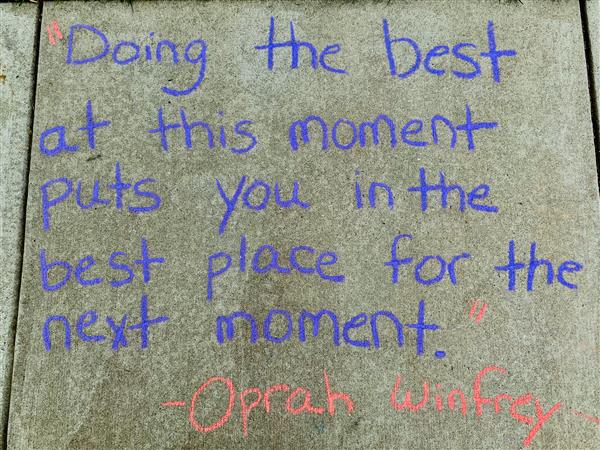 "Doing the best
at this moment
puts you in the
best place for the
next moment."
-Oprah Winfrey-